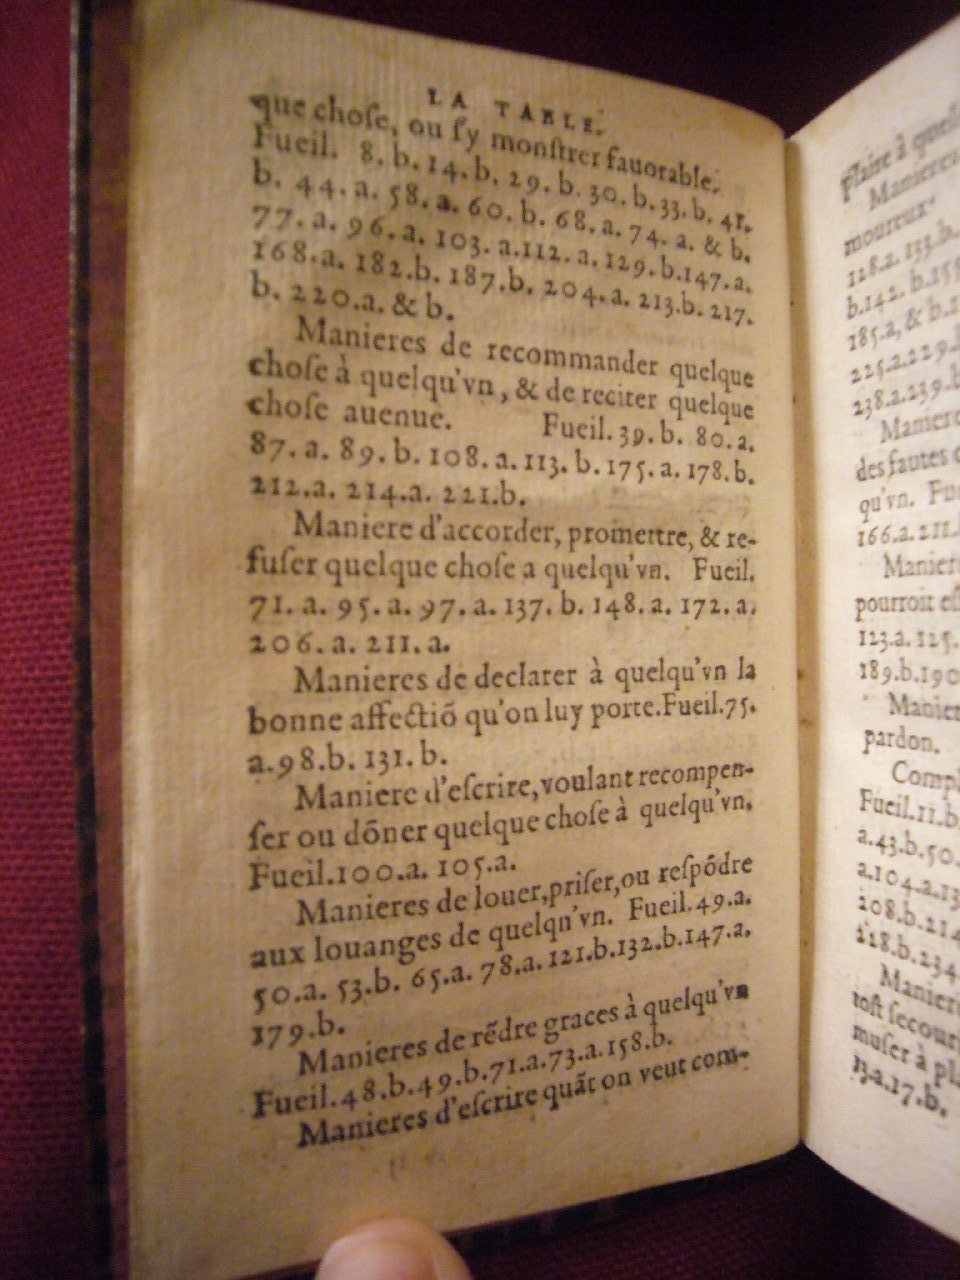 LA TABLE.
que choſe, ou ſ'y monſtrer fauorable.
Fueil. 8. b. 14. b. 29. b. 30. b. 33. b. 41.
b. 44. a. 58. a. 60. b. 68. a. 74. a. & b.
77. a. 96. a. 103. a. 112. a. 129. b. 147. a.
168. a. 182. b. 187. b. 204. a. 213. b. 217.
b. 220. a. & b.
Manieres de recommander quelque
choſe à quelqu'vn, & de reciter quelque
choſe auenue. Fueil. 39. b. 80. a.
87. a. 89. b. 108. a. 113. b. 175. a. 178. b.
212. a. 214. a. 221. b.
Maniere d'accorder, promettre, & re-
fuſer quelque choſe a quelqu'vn. Fueil.
71. a. 95. a. 97. a. 137. b. 148. a. 172. a.
206. a. 211. a.
Manieres de declarer à quelqu'vn la
bonne affectiõ qu'on luy porte. Fueil. 75.
a. 98. b. 131. b.
Maniere d'eſcrire, voulant recompen-
ſer ou dõner quelque choſe à quelqu'vn.
Fueil. 100. a. 105. a.
Manieres de louer, priſer, ou reſpõdre
aux louanges de quelqu'vn. Fueil. 49. a.
50. a. 53. b. 65. a. 78. a. 121. b. 132. b. 147. a.
179. b.
Manieres de rẽdre graces à quelqu'vn
Fueil. 48. b. 49. b. 71. a. 73. a. 158. b.
Manieres d'eſcrire quãt on veut com-
plaire à
Manieres
moureux
128. a. 133. b.
b. 142. b.
185. a, & b.
225. a. 229.
238. a. 239. b
Maniere
des fautes
qu'vn. Fu
166. a. 211.
Manier
pourroit eſ
123. a. 125.
189. b. 190
Manier
pardon.
Compl
Fueil. 11. b.
a. 43. b. 50.
a. 104. a. 13
208. b. 214
218. b. 234
Maniere
toſt ſecour
muſer à pla
13. a. 17. b.